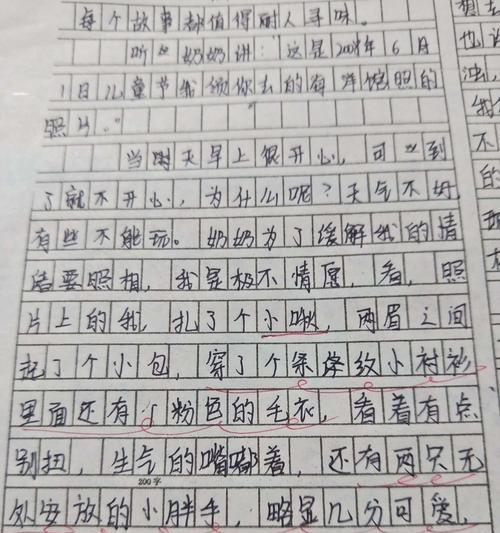 每个故事都值得耐人寻味。
听奶奶讲:"这是2008年6月
1日儿童节我领你去的有洋馆照的
照片。"
当时天早上很开心,可一到
了就不开心,为什么呢?天气不好
有些不能玩。奶奶为了缓解我的情
绪要照相,我是极不情愿,看,照
片上的我,扎了个小啾,两眉之间
起了个小包,穿了个条纹小衬衫
里面还有个粉色的毛衣,看着有点
别扭,生气的嘴嘟着,还有两只无
200字
处安放的小胖手,略显几分可爱,
想去
也说
浊,
我
的